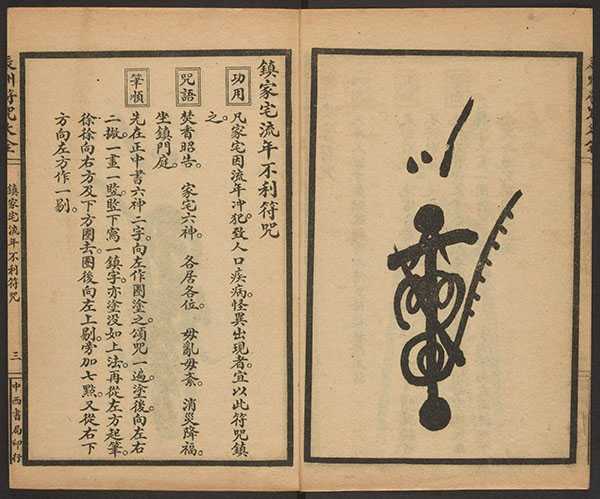 鎮家宅流年不利符咒
功用
凡家宅因流年冲犯。致人口疾病。怪異出現者。宜以此符咒鎮
之。
咒語
焚香昭告。 家宅六神。 各居各位。 毋亂毋紊。 消災降福。
坐鎮門庭。
筆順
先在正中書六神二字。向左作圈塗之。頌咒一遍。塗後向左右
二撇一畫一豎。豎下寫一鎮字。亦塗没如上法。再從左方起筆。
徐徐向右方及下方圈去。圈後向左上剔。旁加七點。又從右下
方向左方作一剔。
鎮家宅流年不利符咒
三
中西書局印行
符咒大全